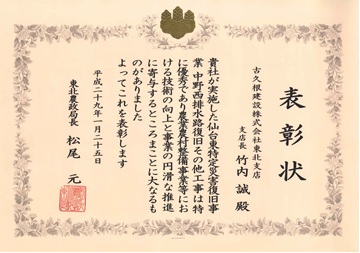 表彰状
古久根建設株式会社東北支店
支店長 竹内 誠 殿
貴社が実施した仙台東特定災害復旧事
業 中野西排水路復旧その他工事は特
に優秀であり農業農村整備事業等にお
ける技術の向上と事業の円滑な推進
に寄与するところまことに大なるも
のがありました
よってこれを表彰します
平成二十九年一月二十五日
東北農政局長 松尾 元